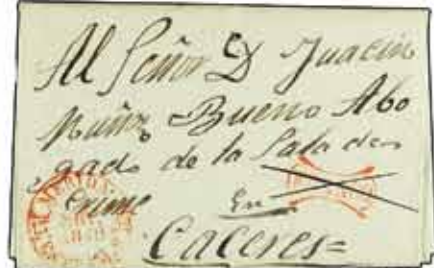 Al Señor D Juacin
Muñoz Bueno Abo
gado de la Sala des
crime En
Caceres=